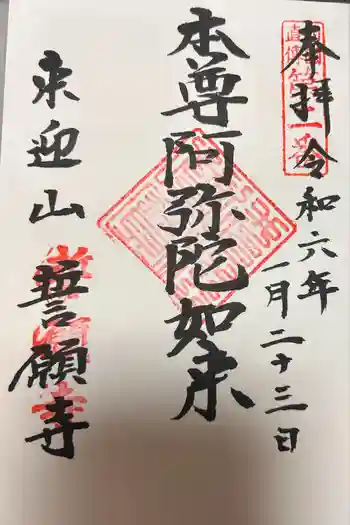 奉拝 令和六年
一月二十三日
本尊阿弥陀如来
来迎山 誓願寺